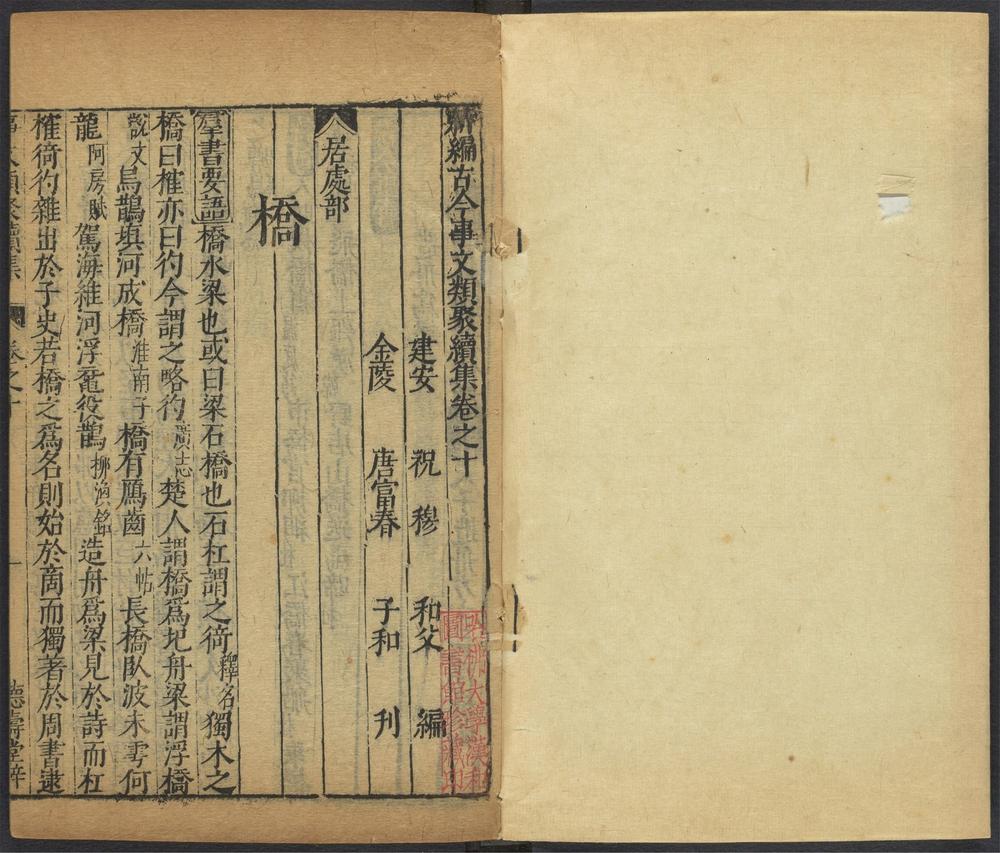 新編古今事文類聚續集卷之十
建安　祝　穆　和父　編
金陵　唐富春　子和　刊
居處部
橋
羣書要語橋水梁也或曰梁石橋也石杠謂之徛釋名獨木之
橋曰榷亦曰彴今謂之略彴廣志楚人謂橋爲圯舟梁謂浮橋
說文烏鵲填河成橋淮南子橋有鴈齒六帖長橋臥波未雩何
龍阿房賦駕海維河浮黿役鵲柳渙銘造舟爲梁見於詩而杠
榷徛彴雜出於子史若橋之爲名則始於啇而獨著於周書逮
事文類聚續集　卷之十　一　德壽堂梓
哈佛大學漢和圖書館珍藏印